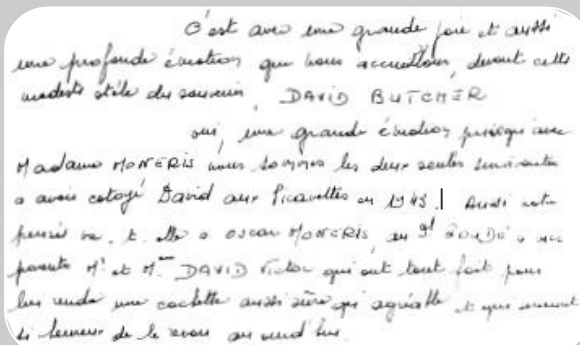 C'est avec une grande joie et aussi
une profonde émotion que nous accueillons, devant cette
modeste stèle du souvenir, DAVID BUTCHER
oui, une grande émotion puisque avec
Madame MONERIS nous sommes les deux seules survivantes
a avoir cotoyé David aux Picavettes en 1943. Aussi notre
pensée va-t-elle a OSCAR MONERIS, au Gl a mes
parents Mr et Mme DAVID Victor qui ont tout fait pour
lui rendre une cachette aussi sûre qu'agréable et qui seraient
si heureux de le revoir aujourd'hui.